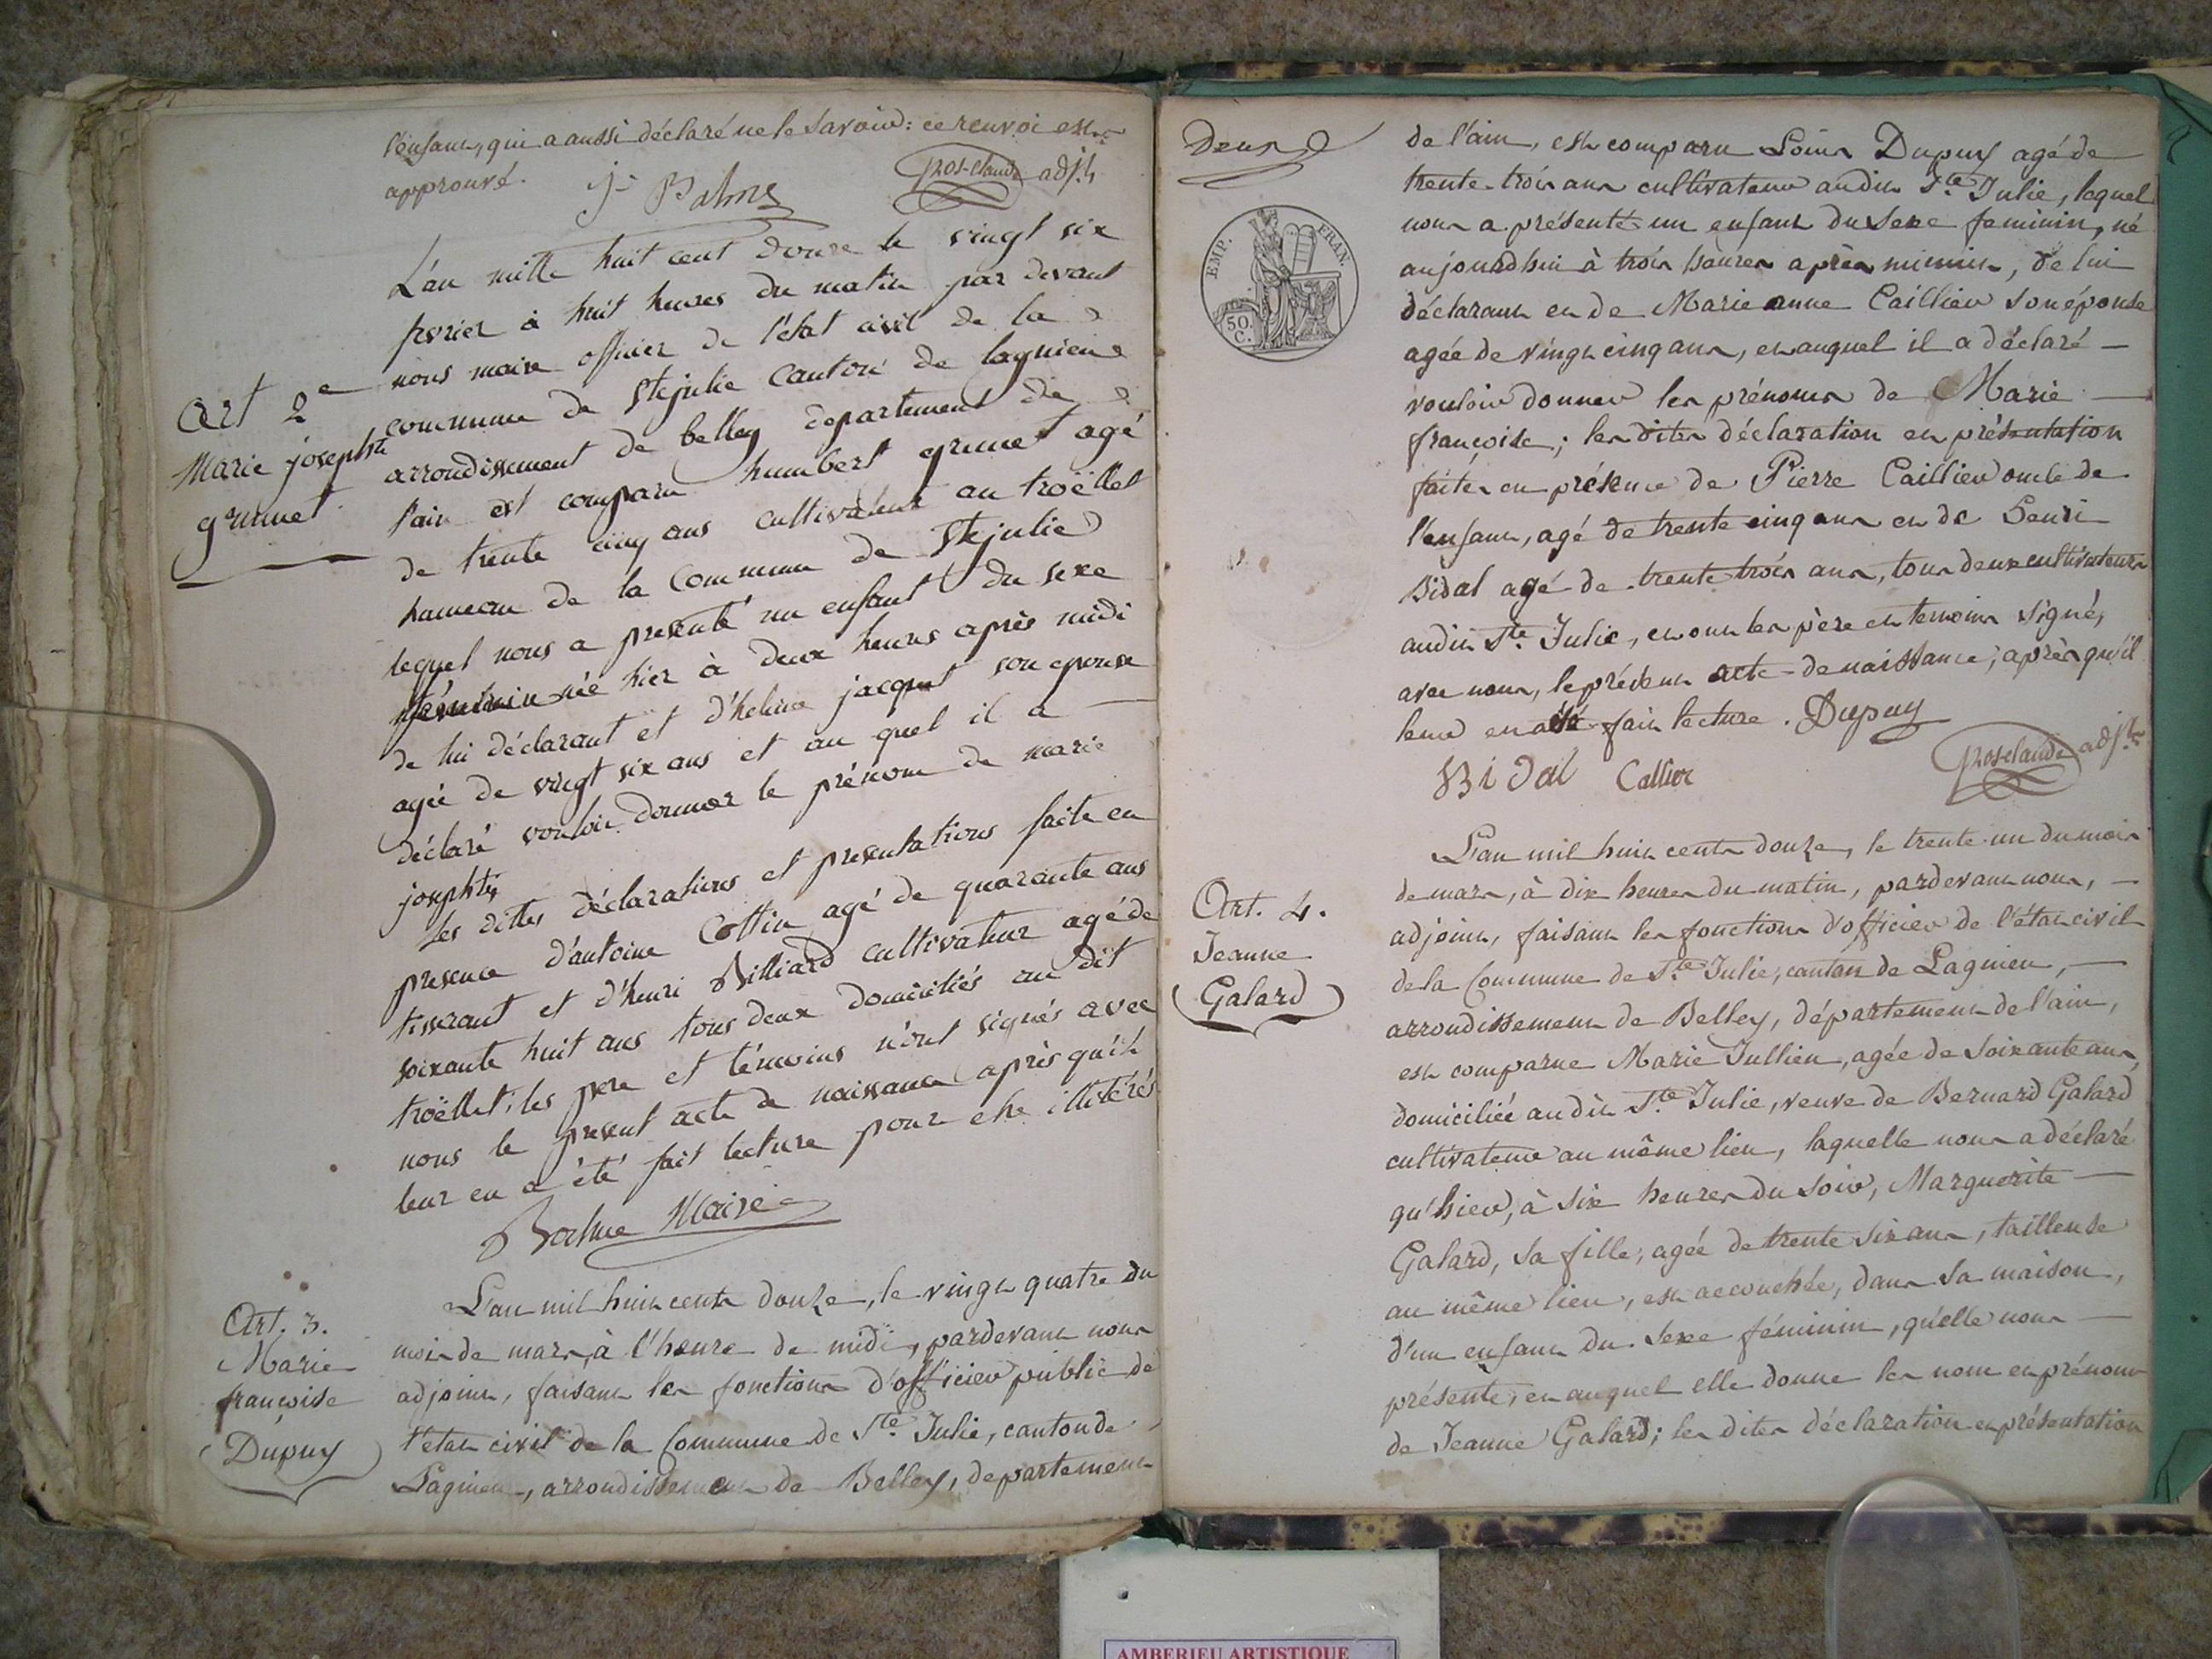 l'enfant, qui a aussi déclaré ne le savoir: ce renvoi est
approuvé. adjt
L'an mille huit cent douze le vingt six
fevrier à huit heures du matin par devant
nous maire officier de l'état civil de la
commune de Stejulie Canton de lagnieu
arrondissement de belley departement de
l'ain est comparu humbert grumet agé
de trente cinq ans cultivateur au troëllet
hameau de la Commune de Stejulie
lequel nous a presenté un enfant du sexe
féminin née hier à deux heures après midi
de lui déclarant et d'helene jacquet son epouse
agée de vingt six ans et au quel il a
déclaré vouloir donner le prénom de marie
josephte
Les dittes déclarations et presentations faite en
presence d'antoine Cottin agé de quarante ans
tisserant et d'henri Billiard cultivateur agé de
soixante huit ans tous deux domiciliés au dit
troëllet, les pere et témoins n'ont signés avec
nous le present acte de naissance après qu'il
leur en a été fait lecture pour etre illitérés
Maire
Art 2e
Marie josephte
grumet
L'an mil huit cent douze, le vingt quatre du
mois de mars, à l'heure de midi, pardevant nous
adjoint, faisant les fonctions d'officier public de
l'état civil de la Commune de Ste. Julie, canton de
Lagnieu, arrondissement de Belley, departement
Art. 3.
Marie
françoise
Dupuy
Deux
EMP. FRAN.
50.
C.
de l'ain, est comparu Louis Dupuy agé de
trente-trois ans cultivateur audit Ste. Julie, lequel
nous a présenté un enfant du sexe feminin, né
aujourdhui à trois heures après minuit, de lui
déclarant et de Marie anne Caillieu son épouse
agée de vingt cinq ans, et auquel il a déclaré
vouloir donner les prénoms de Marie
françoise; les dites déclaration et présentation
faites en présence de Pierre Caillieu oncle de
l'enfant, agé de trente cinq ans et de Henri
Bidal agé de trente trois ans, tous deux cultivateurs
audit Ste. Julie, et ont les père et temoins signé,
avec nous, le présent acte de naissance, après qu'il
leur en a été fait lecture. Dupuy
Bidal Callier adjt
L'an mil huit cent douze, le trente-un du mois
de mars, à dix heures du matin, pardevant nous,
adjoint, faisant les fonctions d'officier de l'état civil
de la Commune de Ste. Julie, canton de Lagnieu,
arrondissement de Belley, département de l'ain,
est comparue Marie Jullien, agée de soixante ans,
domiciliée audit Ste. Julie, veuve de Bernard Galard
cultivateur au même lieu, laquelle nous a déclaré
qu'hier, à six heures du soir, Marguerite
Galard, sa fille, agée de trente six ans, tailleuse
au même lieu, est accouchée, dans sa maison,
d'un enfant du sexe féminin, qu'elle nous
présente, et auquel elle donne les nom et prénom
de Jeanne Galard; les dites déclaration et présentation
Art. 4.
Jeanne
Galard
AMBERIEU ARTISTIQUE